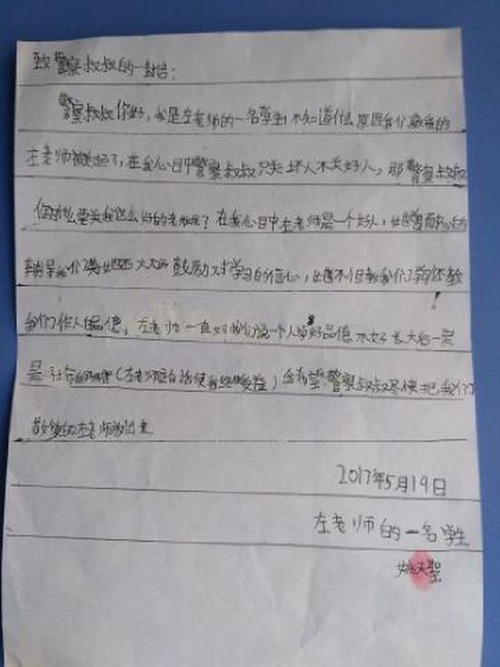 致警察叔叔的一封信：
警察叔叔你好，我是左老师的一名学生不知道什么原因我们敬爱的
左老师被关起了，在我心目中警察叔叔只关坏人不关好人，那警察叔叔
你为什么要关我这么好的老师呢？在我心目中左老师是一个好人，她
我们 她 大大的鼓励 对学习的信心，她不但教我们学还教
我们作人品德，左老师一直对我们说一个人 好品德 不好长大后一定
是社会的 （左老师 话使我 受益）希望警察叔叔尽快把我们
敬爱的左老师放出来
2017年5月19日
左老师的一名学生
姚天聖